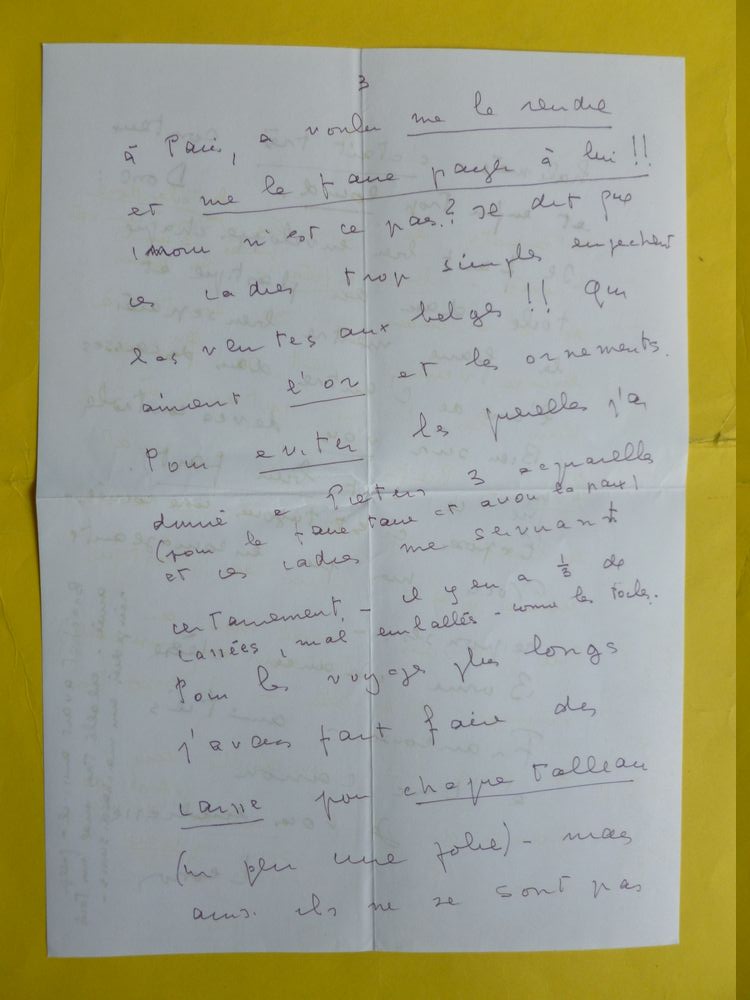 3
à Paris, a voulu me le rendre
et me le faire payer à lui !!
n'est ce pas? Il dit que
ces cadres trop simples empechent
les ventes aux belges !! Qui
aiment l'or et les ornements.
Pour eviter les querelles j'ai
donné a Pieters 3 acquarelles
(pour le faire taire et avoir la paix)
et ces cadres me serviront
certainement. - il y en a 1/3 de
cassées, mal emballés - comme les toiles.
Pour les voyages plus longs
j'avais fait faire des
caisse pour chaque tableau
(un peu une folie) - mais
ainsi ils ne se sont pas